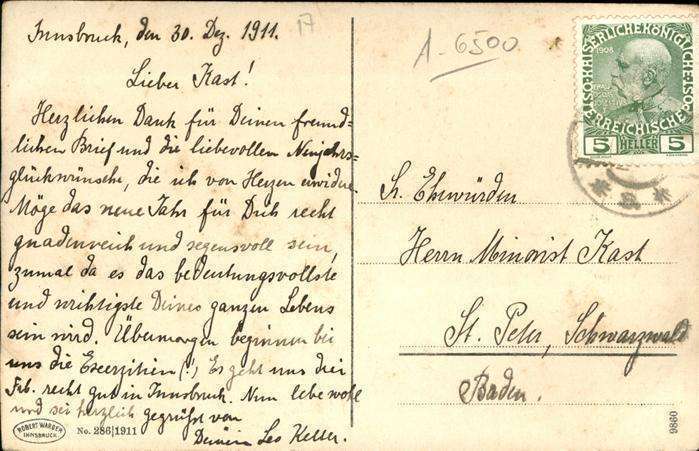 Innsbruck, den 30. Dez. 1911.
Lieber Kast!
Herzlichen Dank für Deinen freund=
lichen Brief und die liebevollen Neujahrs=
glückwünsche, die ich von Herzen erwidere
Möge das neue Jahr für Dich recht
gnadenreich und segensvoll sein,
zumal da es das bedeutungsvollste
und wichtigste Deines ganzen Lebens
sein wird. Übermorgen beginnen bei
uns die Exerzitien (!) Es geht uns drei
recht gut in Innsbruck. Nun lebe wohl
und sei herzlich gegrüßt von
Deinem Leo Keller.
ROBERT WARGER
INNSBRUCK
No. 286|1911
17
A-6500
1908
KAISERLICHE KÖNIGLICHE
ÖSTERREICHISCHE
5 HELLER 5
Sr. Ehrwürden
Herrn Minorist Kast
St. Peter, Schwarzwald
Baden.
9860